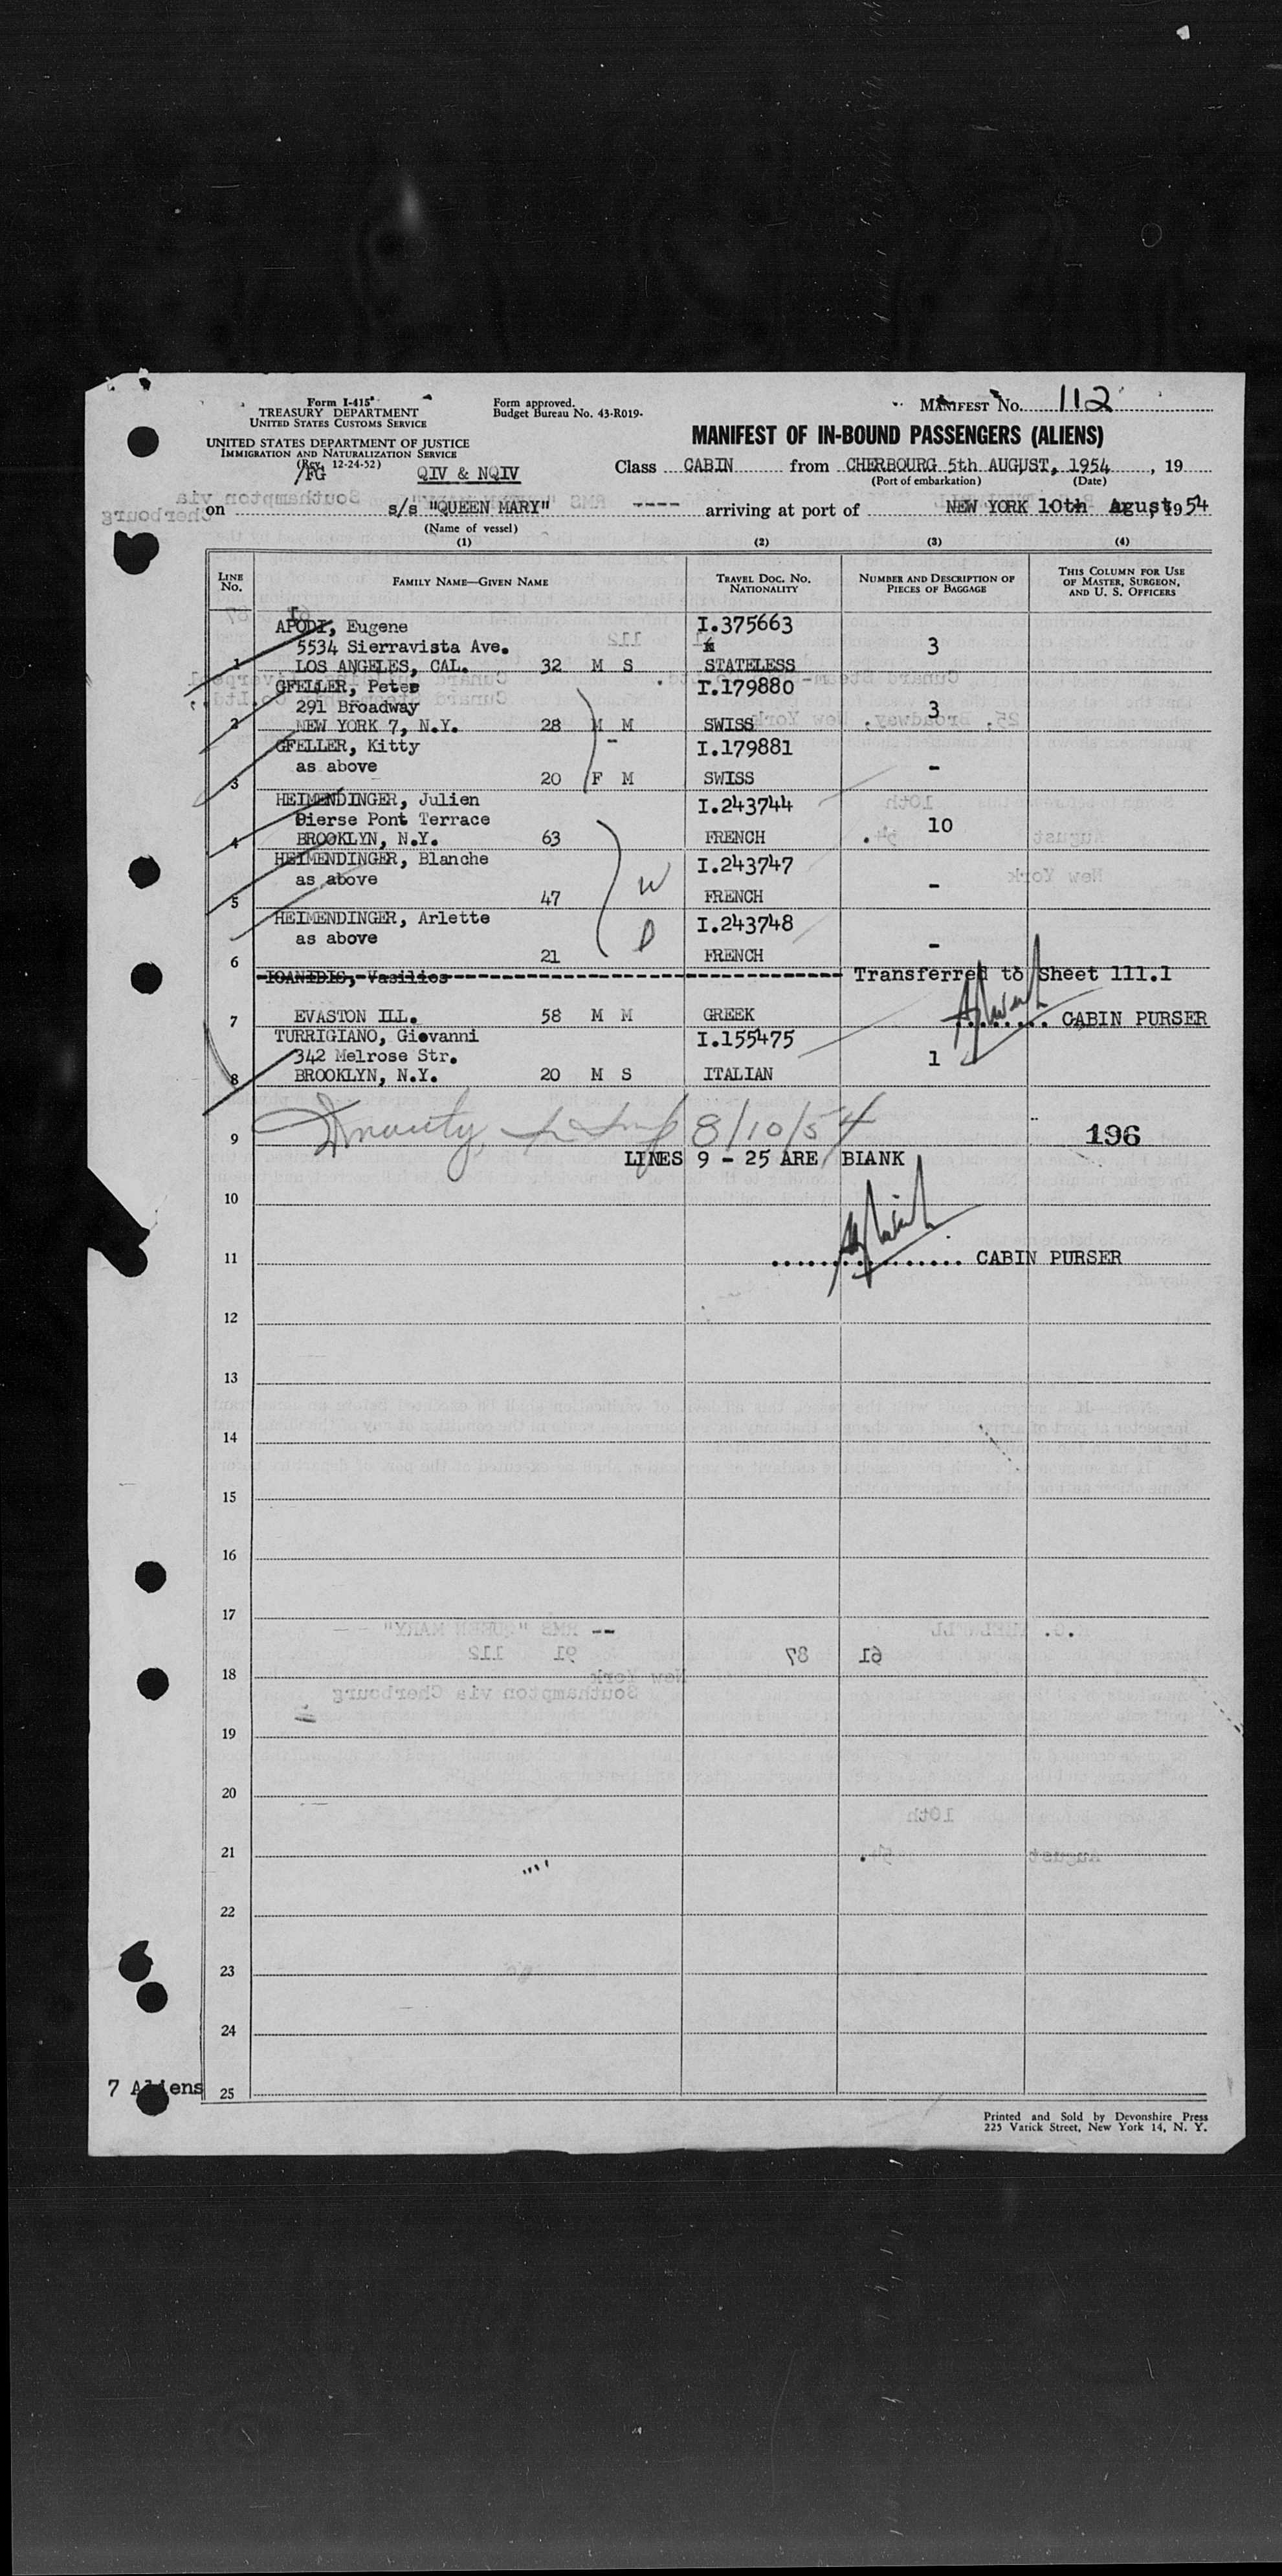 Form I-415
TREASURY DEPARTMENT
UNITED STATES CUSTOMS SERVICE
UNITED STATES DEPARTMENT OF JUSTICE
IMMIGRATION AND NATURALIZATION SERVICE
(Rev. 12-24-52)
/FG
QIV & NQIV
Form approved.
Budget Bureau No. 43-R019-
MANIFEST NO. 112
MANIFEST OF IN-BOUND PASSENGERS (ALIENS)
Class CABIN from CHERBOURG 5th AUGUST, 1954, 19
(Port of embarkation) (Date)
on s/s "QUEEN MARY" ---- arriving at port of NEW YORK 10th August 1954
(Name of vessel)
(1) (2) (3) (4)
LINE NO. FAMILY NAME—GIVEN NAME TRAVEL DOC. NO. NATIONALITY NUMBER AND DESCRIPTION OF PIECES OF BAGGAGE THIS COLUMN FOR USE OF MASTER, SURGEON, AND U. S. OFFICERS
APODI, Eugene I.375663
5534 Sierravista Ave. 3
1 LOS ANGELES, CAL. 32 M S STATELESS
GFELLER, Peter I.179880
291 Broadway 3
2 NEW YORK 7, N.Y. 28 M M SWISS
GFELLER, Kitty - I.179881
as above -
3 20 F M SWISS
HEIMENDINGER, Julien I.243744
Pierse Pont Terrace 10
4 BROOKLYN, N.Y. 63 FRENCH
HEIMENDINGER, Blanche I.243747
as above W -
5 47 FRENCH
HEIMENDINGER, Arlette I.243748
as above D -
6 21 FRENCH
IOANIDIS, Vasilios Transferred to Sheet 111.1
7 EVASTON ILL. 58 M M GREEK CABIN PURSER
TURRIGIANO, Giovanni I.155475
342 Melrose Str. 1
8 BROOKLYN, N.Y. 20 M S ITALIAN
8/10/54
9 196
LINES 9 - 25 ARE BLANK
10
11 CABIN PURSER
12
13
14
15
16
17
18
19
20
21
22
23
24
7 Aliens 25
Printed and Sold by Devonshire Press
225 Varick Street, New York 14, N. Y.